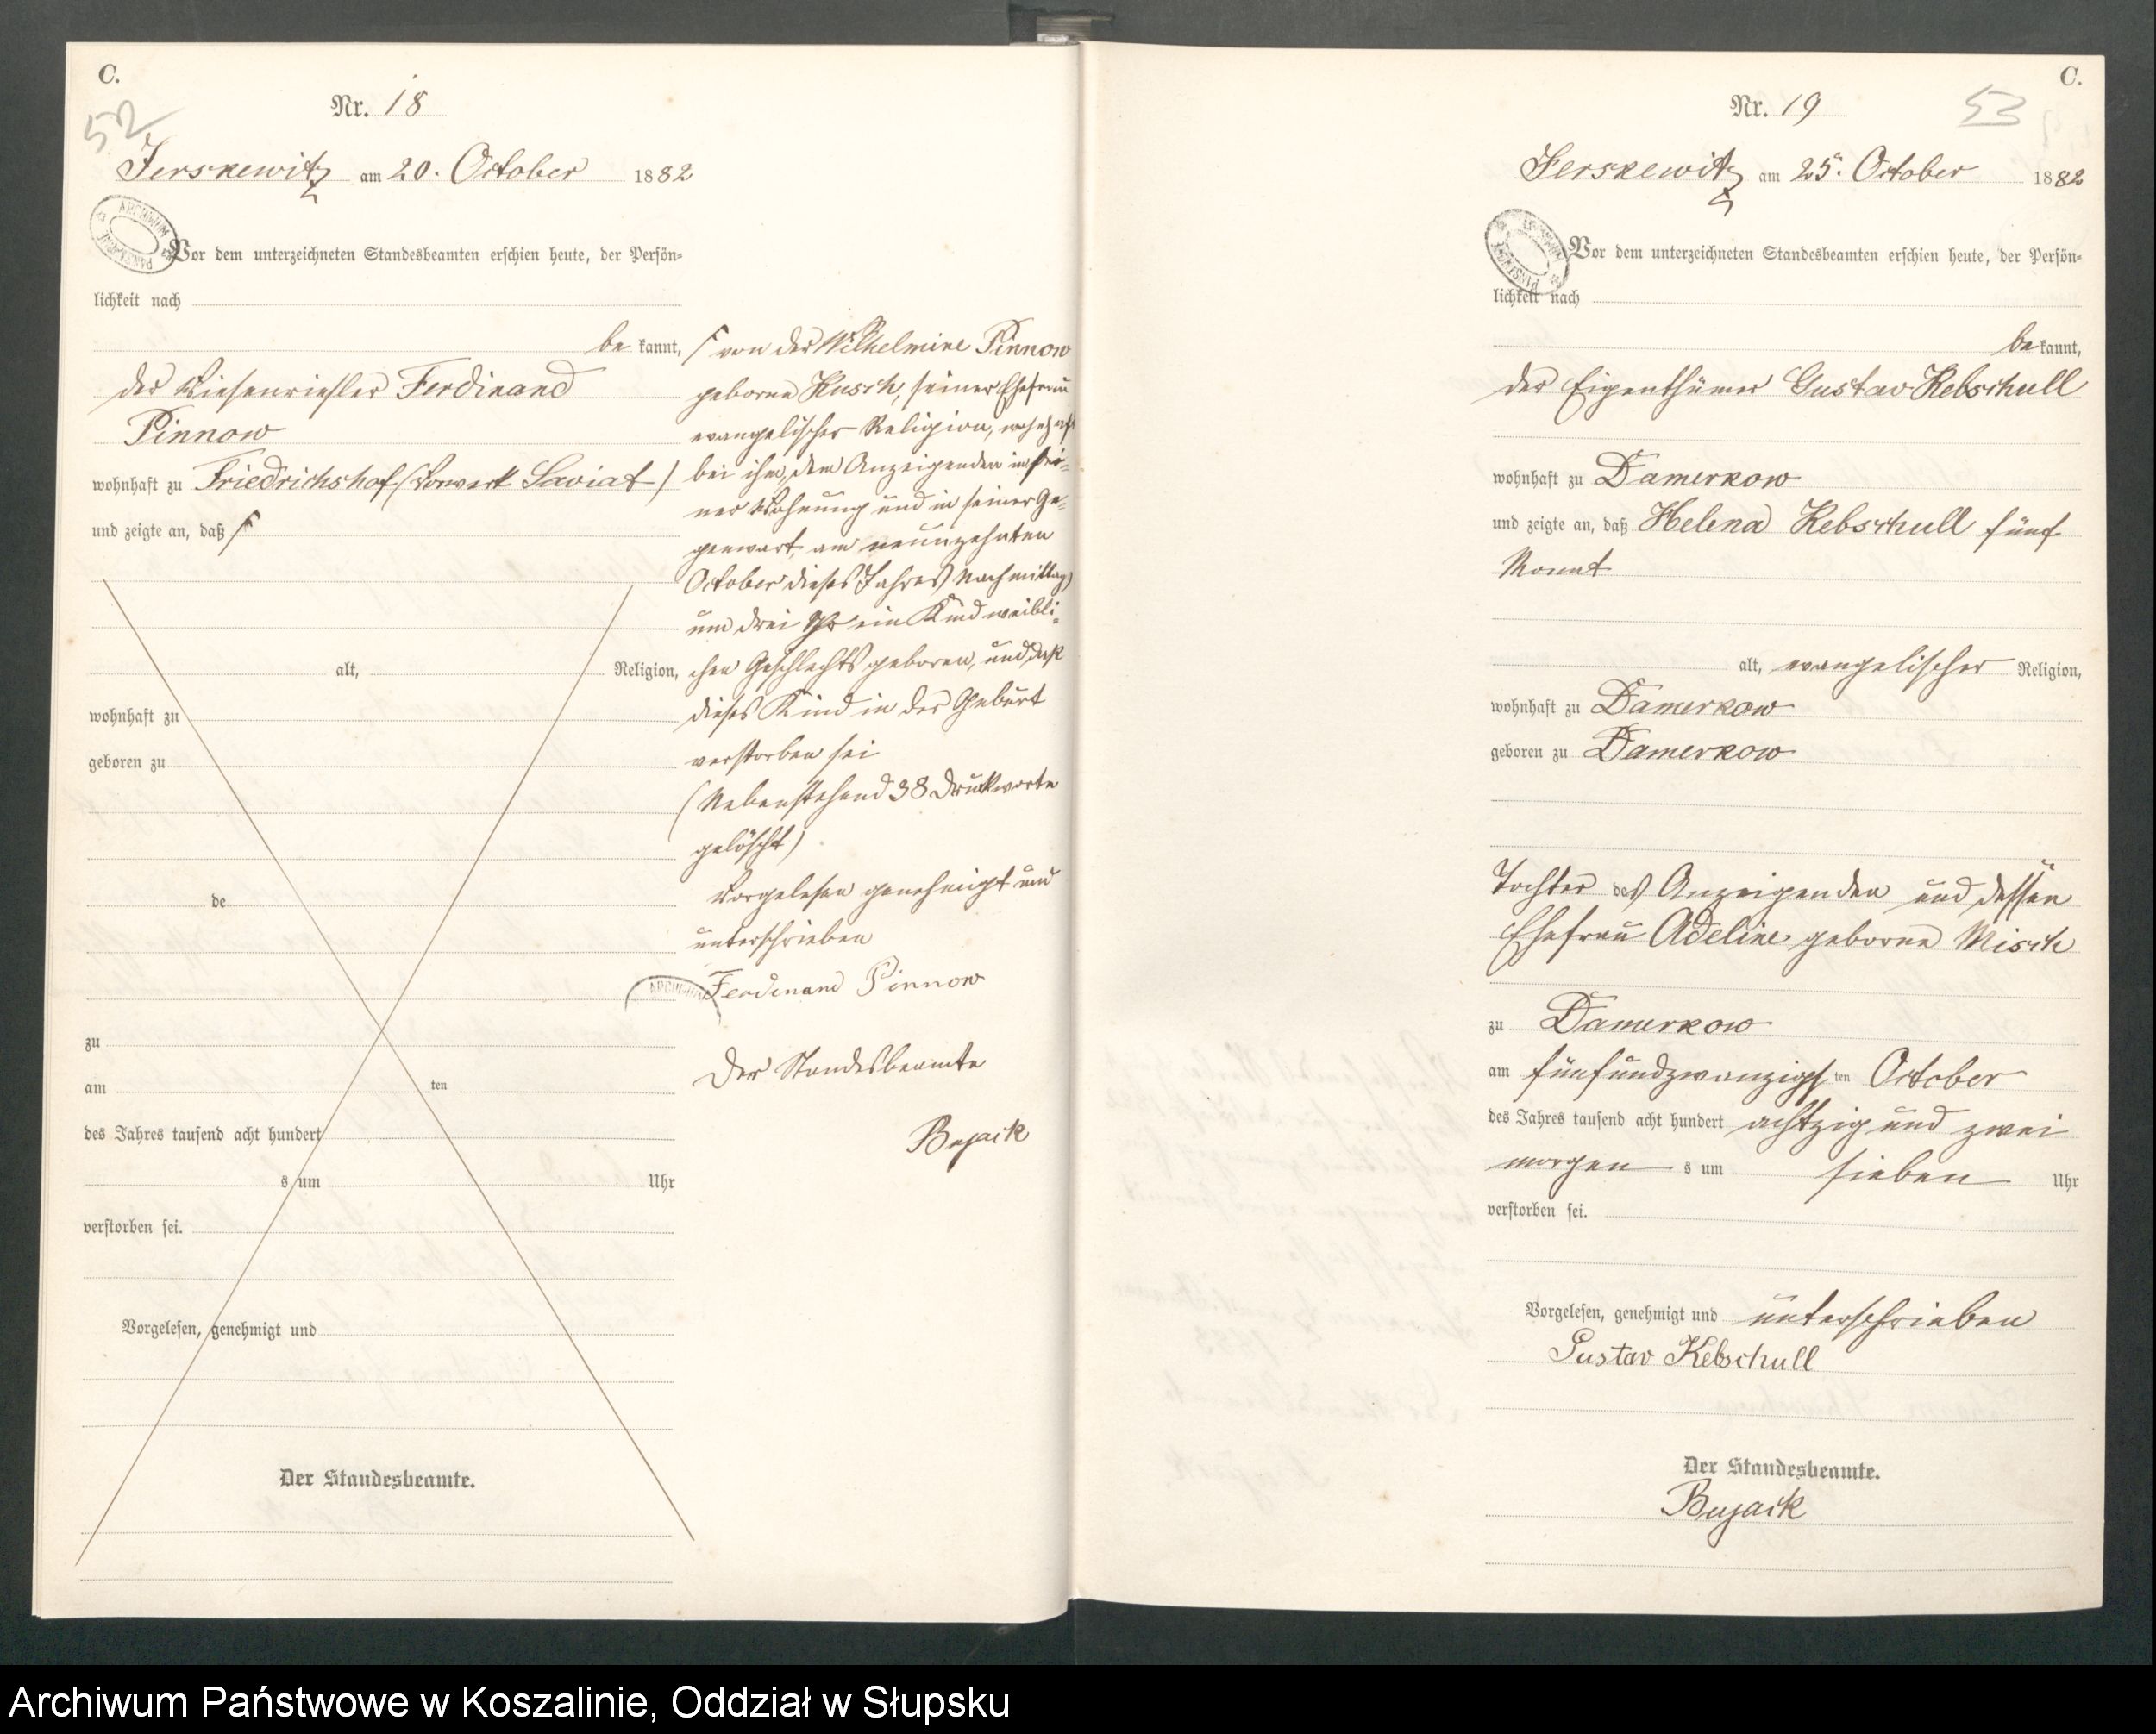 C.
52
Nr. 18
Jerskewitz am 20. October 1882
Vor dem unterzeichneten Standesbeamten erschien heute, der Persön-
lichkeit nach
be kannt,
der Wiesenriesler Ferdinand
Pinnow
wohnhaft zu Friedrichshof (Vorwerk Saviat)
und zeigte an, daß
alt, Religion,
wohnhaft zu
geboren zu
de
zu
am ten
des Jahres tausend acht hundert
s um Uhr
verstorben sei.
Vorgelesen, genehmigt und
Der Standesbeamte.
von der Wilhelmine Pinnow
geborne Kusch, seiner Ehefrau
evangelischer Religion, wohnhaft
bei ihm, dem Anzeigenden in sei-
ner Wohnung und in seiner Ge-
genwart, am neunzehnten
October dieses Jahres Nachmittags
um drei Uhr ein Kind weibli-
chen Geschlechts geboren, und daß
dieses Kind in der Geburt
verstorben sei
(Nebenstehend 38 Druckworte
gelöscht)
Vorgelesen genehmigt und
unterschrieben
Ferdinand Pinnow
Der Standesbeamte
Bujack
C.
53
Nr. 19
Jerskewitz am 25. October 1882
Vor dem unterzeichneten Standesbeamten erschien heute, der Persön-
lichkeit nach
be kannt,
der Eigenthümer Gustav Kebschull
wohnhaft zu Damerkow
und zeigte an, daß Helena Kebschull fünf
Monat
alt, evangelischer Religion,
wohnhaft zu Damerkow
geboren zu Damerkow
Tochter des Anzeigenden und dessen
Ehefrau Adeline geborne Misch
zu Damerkow
am fünfundzwanzigsten October
des Jahres tausend acht hundert achtzig und zwei
morgen s um sieben Uhr
verstorben sei.
Vorgelesen, genehmigt und unterschrieben
Gustav Kebschull
Der Standesbeamte.
Bujack
Archiwum Państwowe w Koszalinie, Oddział w Słupsku